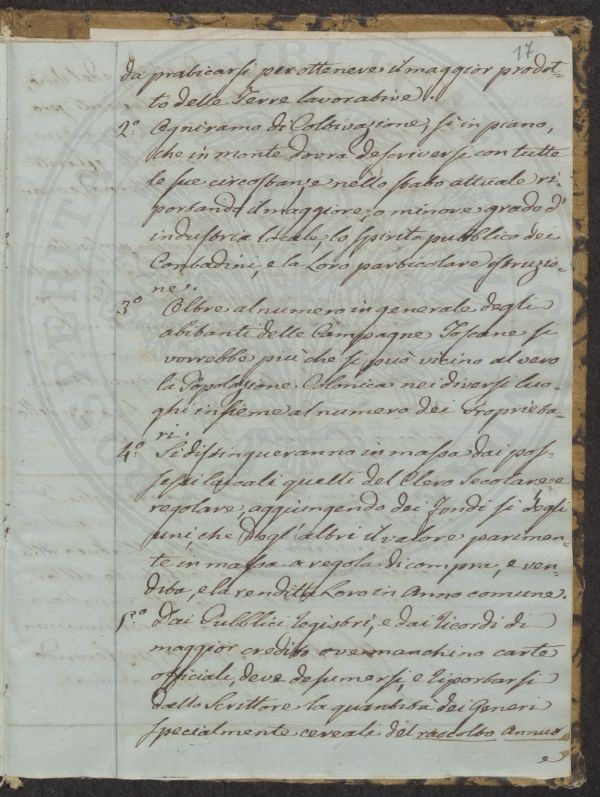 17
da praticarsi per ottenere il maggior prodot-
to delle Terre lavorative.
2.° Ogni ramo di Coltivazione, sì in piano,
che in monte dovrà descriversi con tutte
le sue circostanze nello stato attuale ri-
portando il maggiore, o minore grado d'
industria locale lo spirito pubblico dei
Contadini e la loro particolare istruzio-
ne.
3.° Oltre al numero in generale degli
abitanti delle Campagne Toscane si
vorrebbe più che si può vicino al vero
la Popolazione Colonica nei diversi luo-
ghi insieme al numero dei Proprieta-
ri.
4.° Si distingueranno in massa dai pos-
sessi laicali quelli del Clero Secolare e
regolare, aggiungendo dei Fondi sì degli
uni, che degl'altri il valore parimen-
te in massa a regola di compra, e ven-
dita, e la rendita loro in Anno comune.
5.° Dai Pubblici Registri, e dai Ricordi di
maggior credito ove manchino carte
officiali, deve desumersi, e Riportarsi
dallo Scrittore la quantità dei Generi
specialmente cereali del raccolto Annuo
e